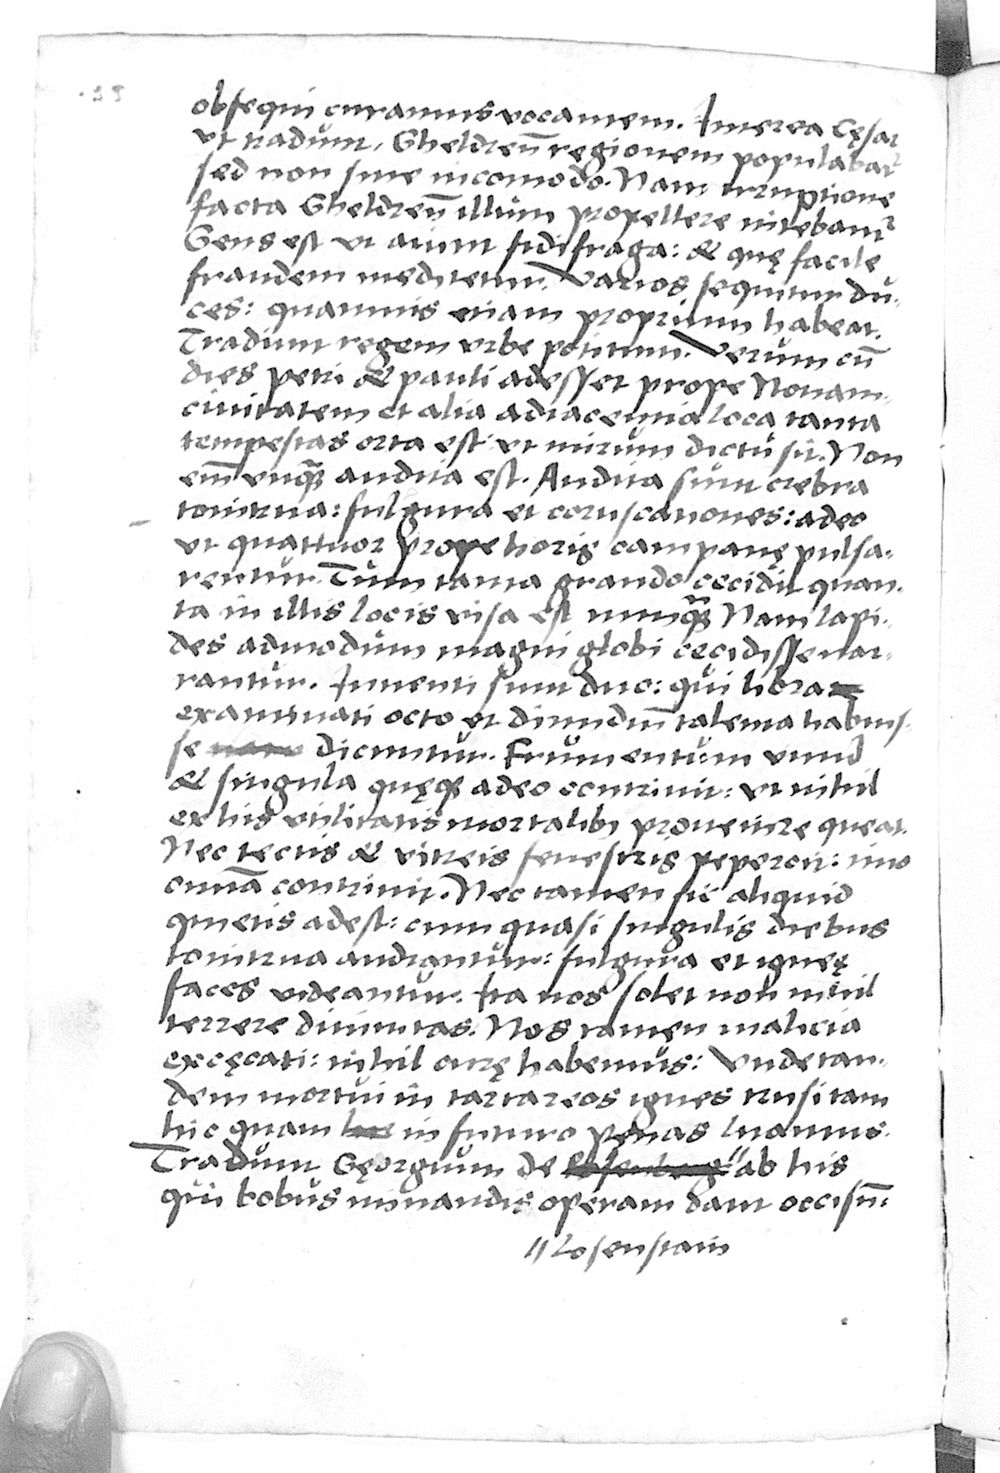 obsequi curamus vocantem. Interea Cęsar
vt tradunt, Gheldreñ regionem populabat᷑
sed non sine incomodo. Nam irruptione
facta Gheldreñ illum propellere nitebant᷑
Gens est vt aiunt fidifraga: & quę facile
fraudem meditetur. Varios sequitur du-
ces: quamuis etiam proprium habeat.
Tradunt regem vrbe potitum. Verum cũ
dies petri & pauli adesset prope Nouam-
ciuitatem et alia adiacentia loca tanta
tempestas orta est vt mirum dictu sit. Non
em̃ vnq̃ꝫ audita est. Audita sunt crebra
tonitrua: fulgura et coruscationes: adeo
vt quattuor prope horis campanę pulsa-
rentur. Tum tanta grando cecidit quan-
ta in illis locis visa est nunq̃ꝫ Nam lapi-
des admodum magni globi cecidisse nar-
rantur. Inuenti sunt duo: qui hora
examinati octo et dimidiũ talenta habuis-
se dicuntur. Frumentum vinũ
& singula quęqꝫ adeo contriuit: vt nihil
ex his vtilitatis mortalibꝫ prouenire queat.
Nec tectis & vitreis fenestris pepercit: imo
omnia contriuit. Nec tamen sic aliquid
quietis adest: cum quasi singulis diebus
tonitrua audiantur: fulgura et igneę
faces videantur. Ita nos solet non nihil
terrere diuinitas. Nos tamen malicia
excęcati: nihil curę habemus: Vnde tan-
dem mortui in tartareos ignes trusi tam
hic quam in futuro penas luamus.
Tradunt Gęorgium de Losenberg " ab his
qui bobus minandis operam dant occisũ:
" Losenstain